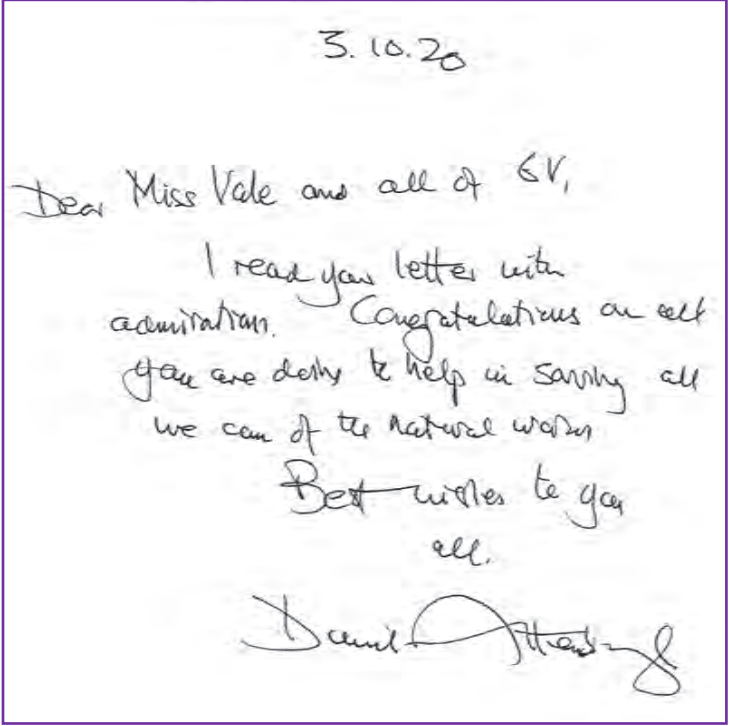 3.10.20
Dear Miss Vale and all of 6V,
I read your letter with
admiration. Congratulations on all
you are doing to help in saving all
we can of the natural world
Best wishes to you
all.
David Attenborough